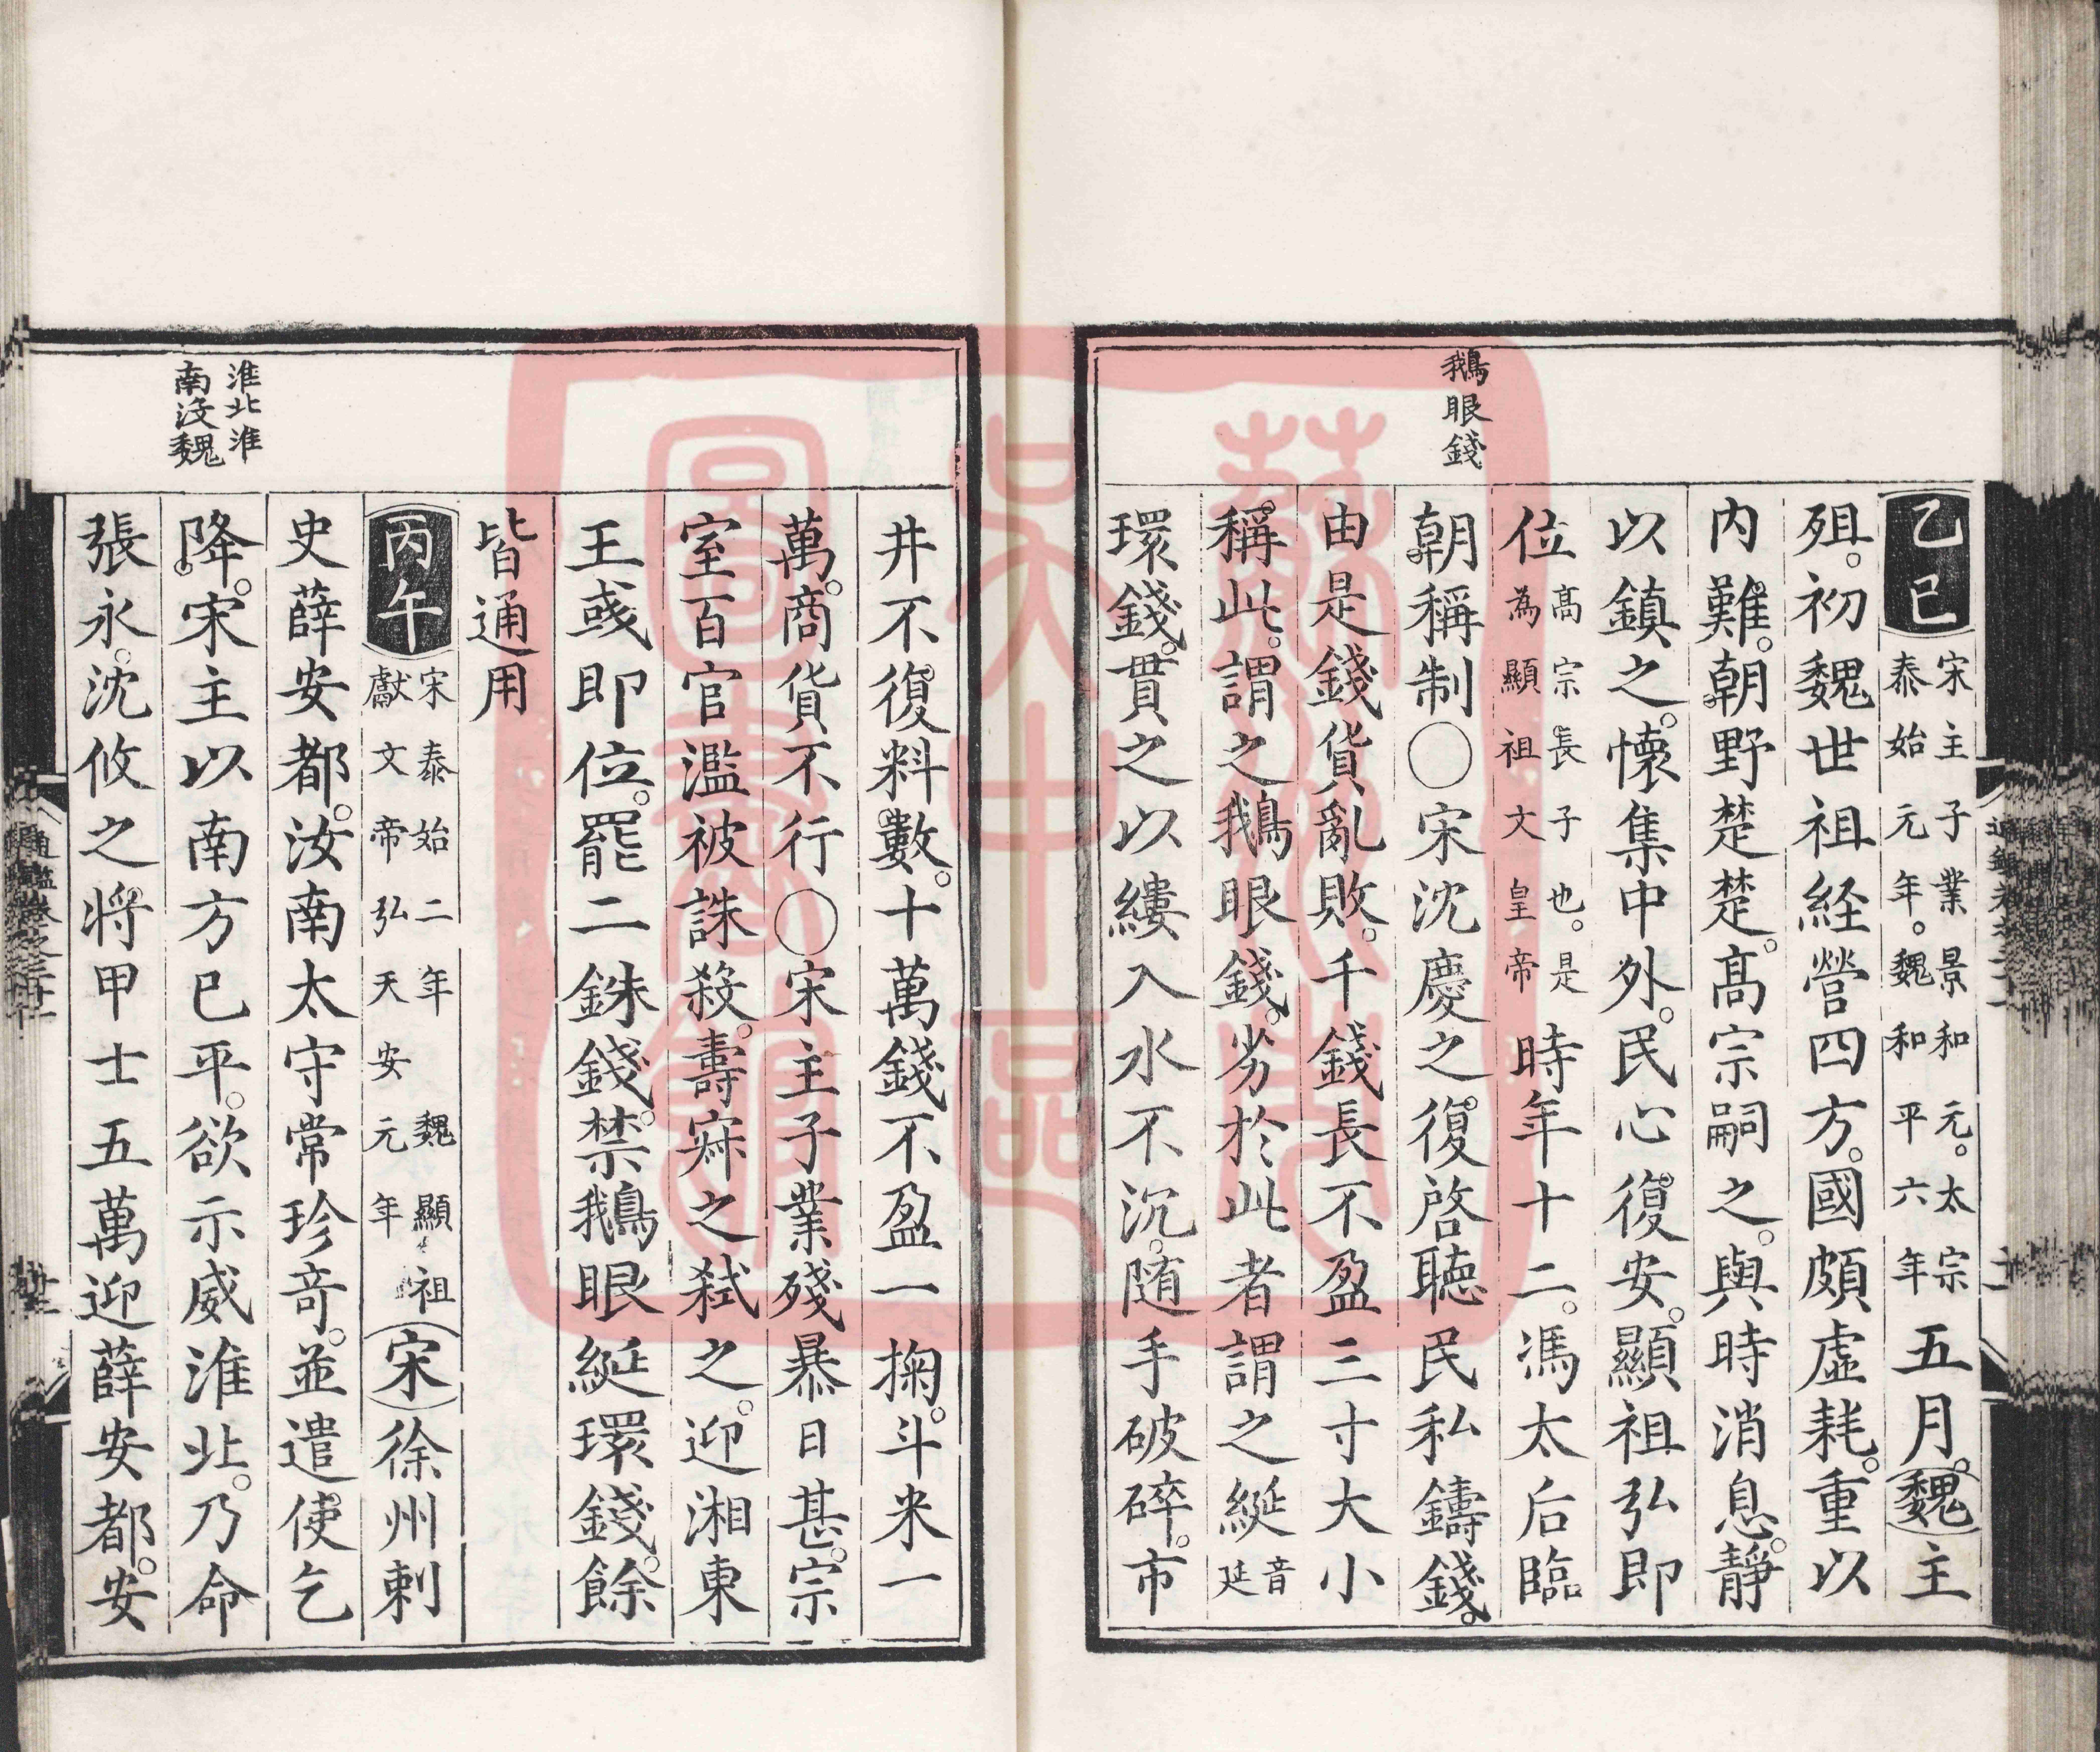 鵝眼錢
乙巳宋主子業景和元。太宗泰始元年。魏和平六年五月。魏主
殂。初魏世祖経營四方。國頗虛耗。重以
内難。朝野楚楚。髙宗嗣之。與時消息。靜
以鎮之。懷集中外。民心復安。顯祖弘即
位髙宗長子也。是為顯祖文皇帝時年十二。馮太后臨
朝稱制〇宋沈慶之復啓聽民私鑄錢。
由是錢貨亂敗。千錢長不盈三寸大小
稱此。謂之鵝眼錢。劣於此者謂之綖音延
環錢。貫之以縷入水不沉。随手破碎。市
井不復料數。十萬錢不盈一掬。斗米一
萬。商貨不行〇宋主子業殘暴日甚。宗
室百官濫被誅殺。壽寂之弑之。迎湘東
王彧即位。罷二銖錢。禁鵝眼綖環錢。餘
皆通用
丙午宋泰始二年魏顯祖獻文帝弘天安元年宋徐州刺
史薛安都。汝南太守常珍竒。並遣使乞
降。宋主以南方巳平。欲示威淮北。乃命
張永。沈攸之。将甲士五萬迎薛安都。安
淮北淮
南沒魏